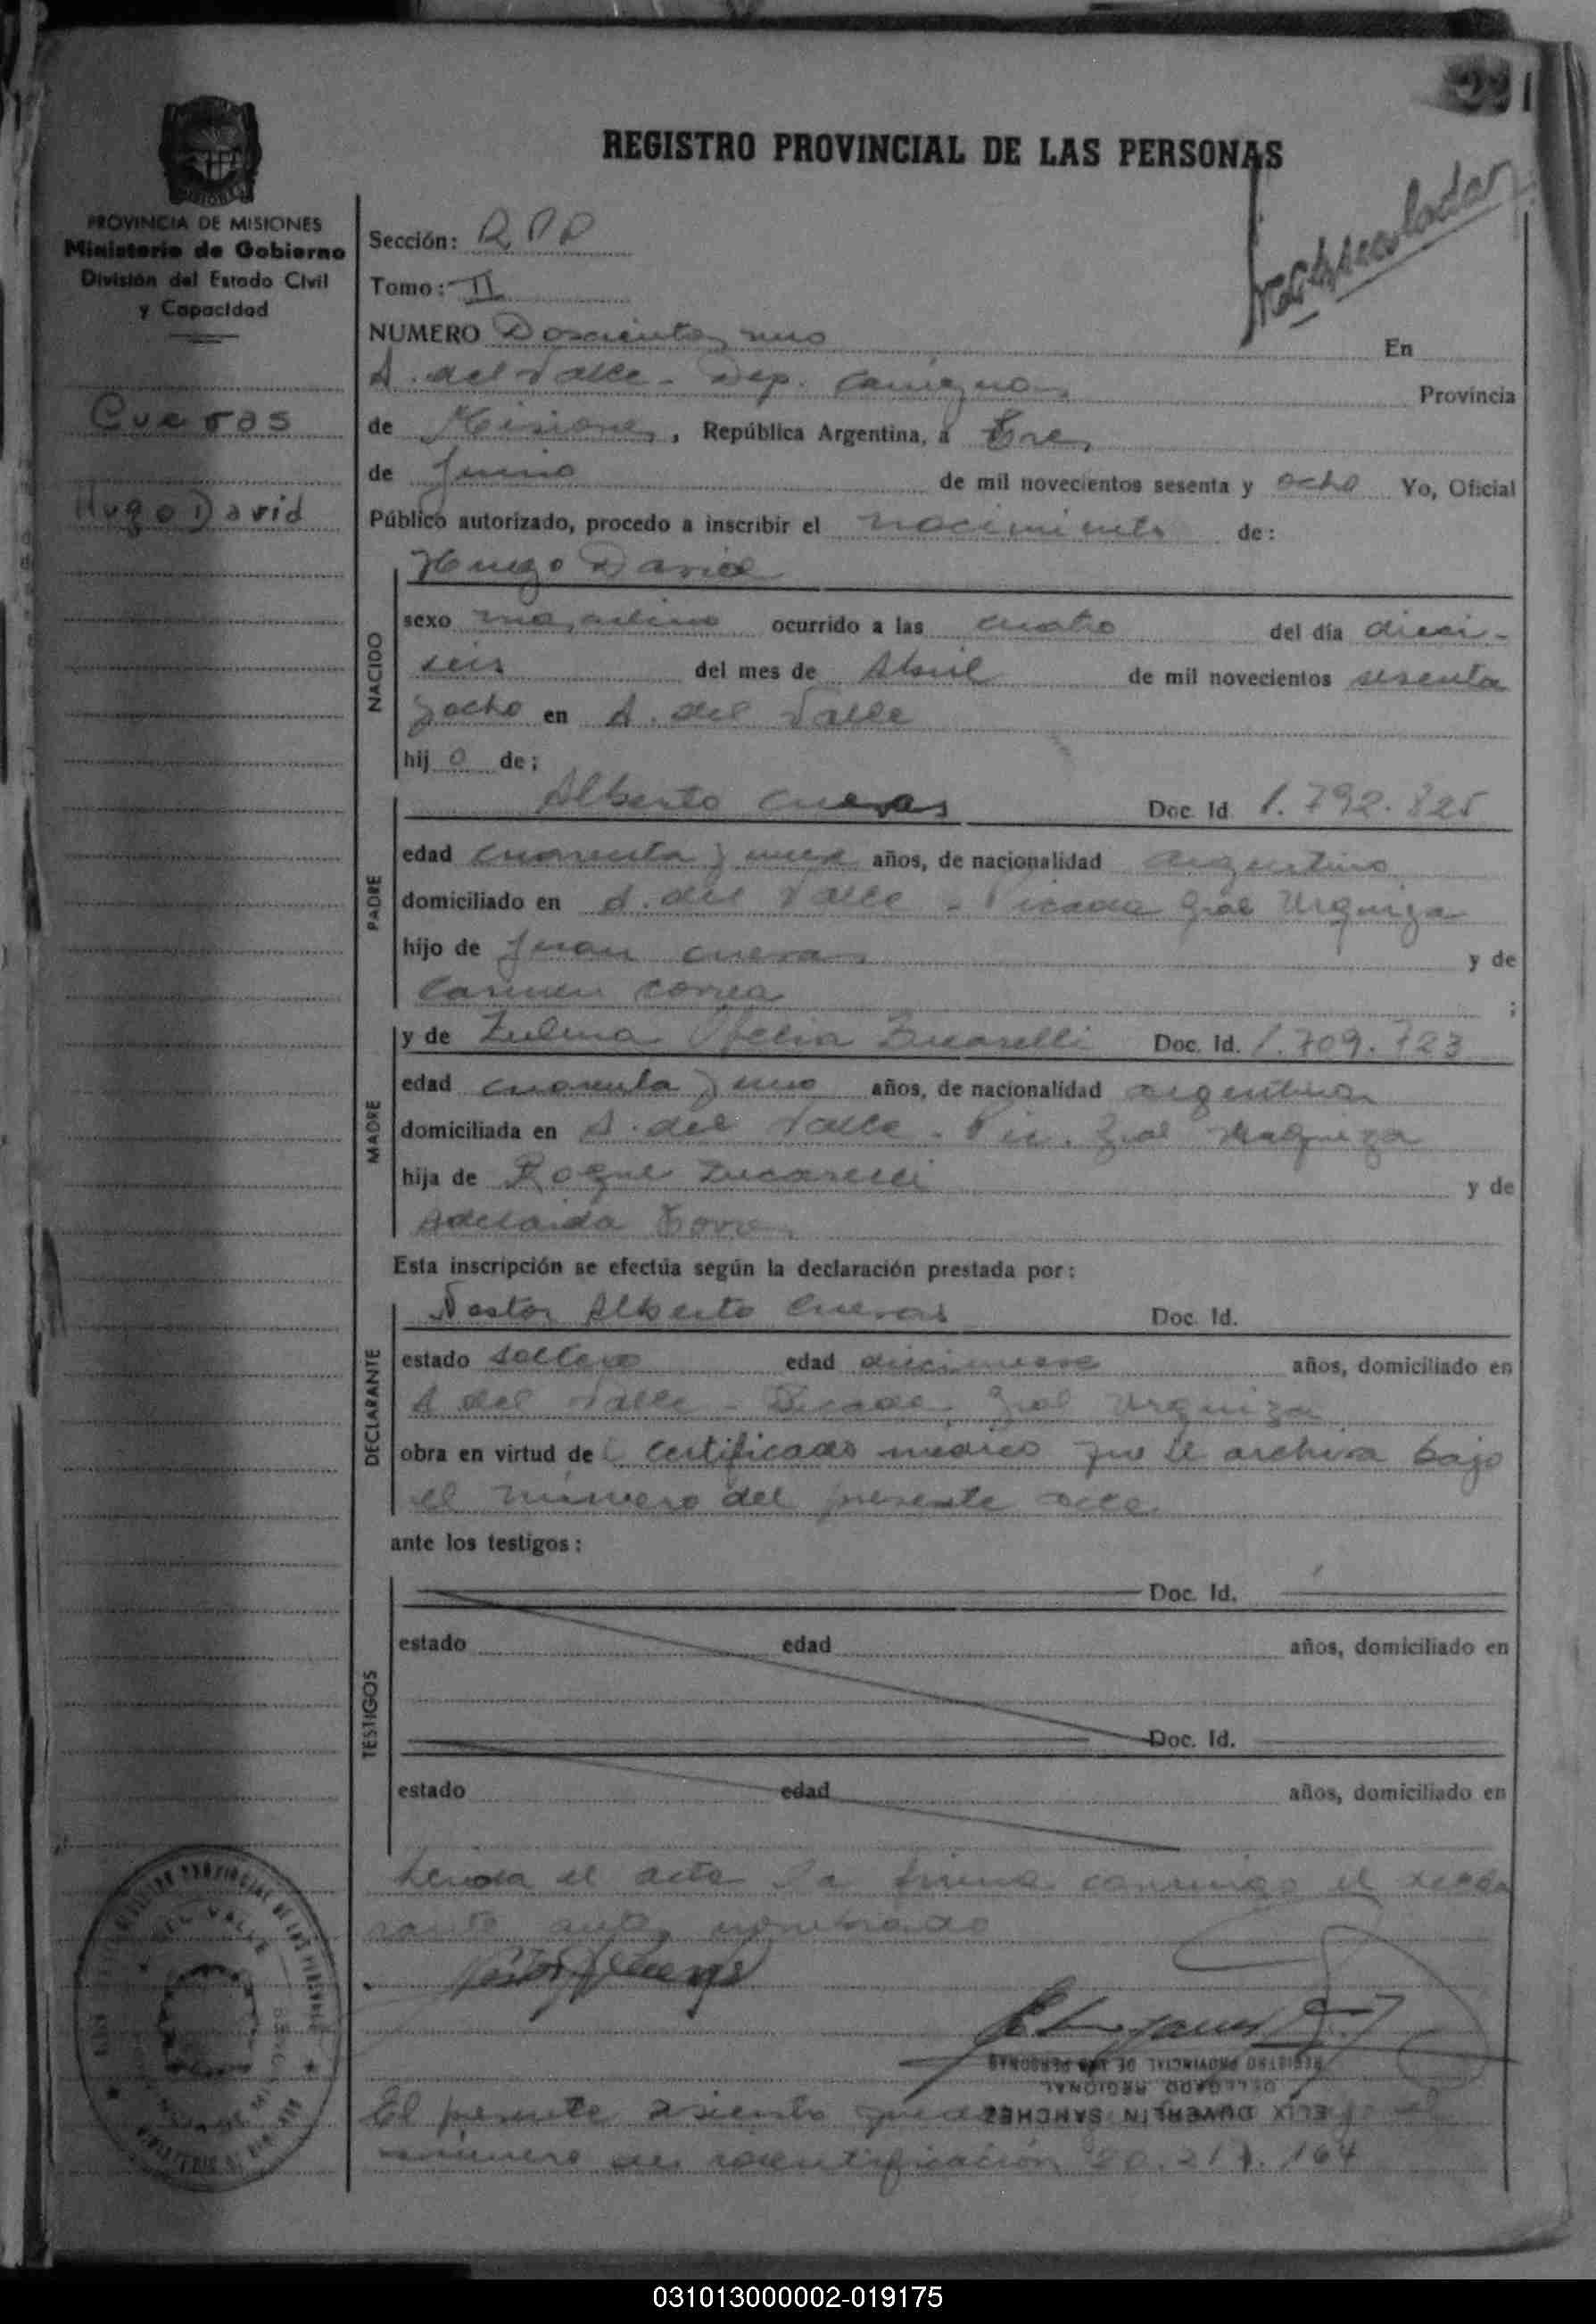 REGISTRO PROVINCIAL DE LAS PERSONAS
PROVINCIA DE MISIONES
Ministerio de Gobierno
División del Estado Civil
y Capacidad
Cuevas
Hugo David
Sección: R P P
Tomo: II
NUMERO Doscientos uno En
A. del Valle - Dep. Cainguas Provincia
de Misiones, República Argentina, a Tres
de Junio de mil novecientos sesenta y ocho Yo, Oficial
Público autorizado, procedo a inscribir el nacimiento de:
Hugo David
NACIDO
sexo masculino ocurrido a las cuatro del día dieci-
seis del mes de Abril de mil novecientos sesenta
y ocho en A. del Valle
hij o de;
PADRE
Alberto Cuevas Doc. Id. 1.792.825
edad cuarenta y nueve años, de nacionalidad argentino
domiciliado en A. del Valle - Picada Gral Urquiza
hijo de Juan Cuevas y de
Carmen Correa ;
MADRE
y de Zulma Ofelia Zucarelli Doc. Id. 1.709.723
edad cuarenta y uno años, de nacionalidad argentina
domiciliada en A. del Valle - Pic. Gral Urquiza
hija de Roque Zucarelli y de
Adelaida Torres
Esta inscripción se efectúa según la declaración prestada por:
DECLARANTE
Nestor Alberto Cuevas Doc. Id.
estado soltero edad diecinueve años, domiciliado en
A del Valle - Picada Gral Urquiza
obra en virtud de certificado medico que se archiva bajo
el número del presente acta
ante los testigos:
TESTIGOS
Doc. Id.
estado edad años, domiciliado en
Doc. Id.
estado edad años, domiciliado en
Leida el acta la firma conmigo el decla
rante antes nombrado
REGISTRO PROVINCIAL DE LAS PERSONAS
DELEGADO REGIONAL
FELIX DUVERLIN SANCHEZ
El presente asiento
número de identificación 20.217.164
031013000002-019175